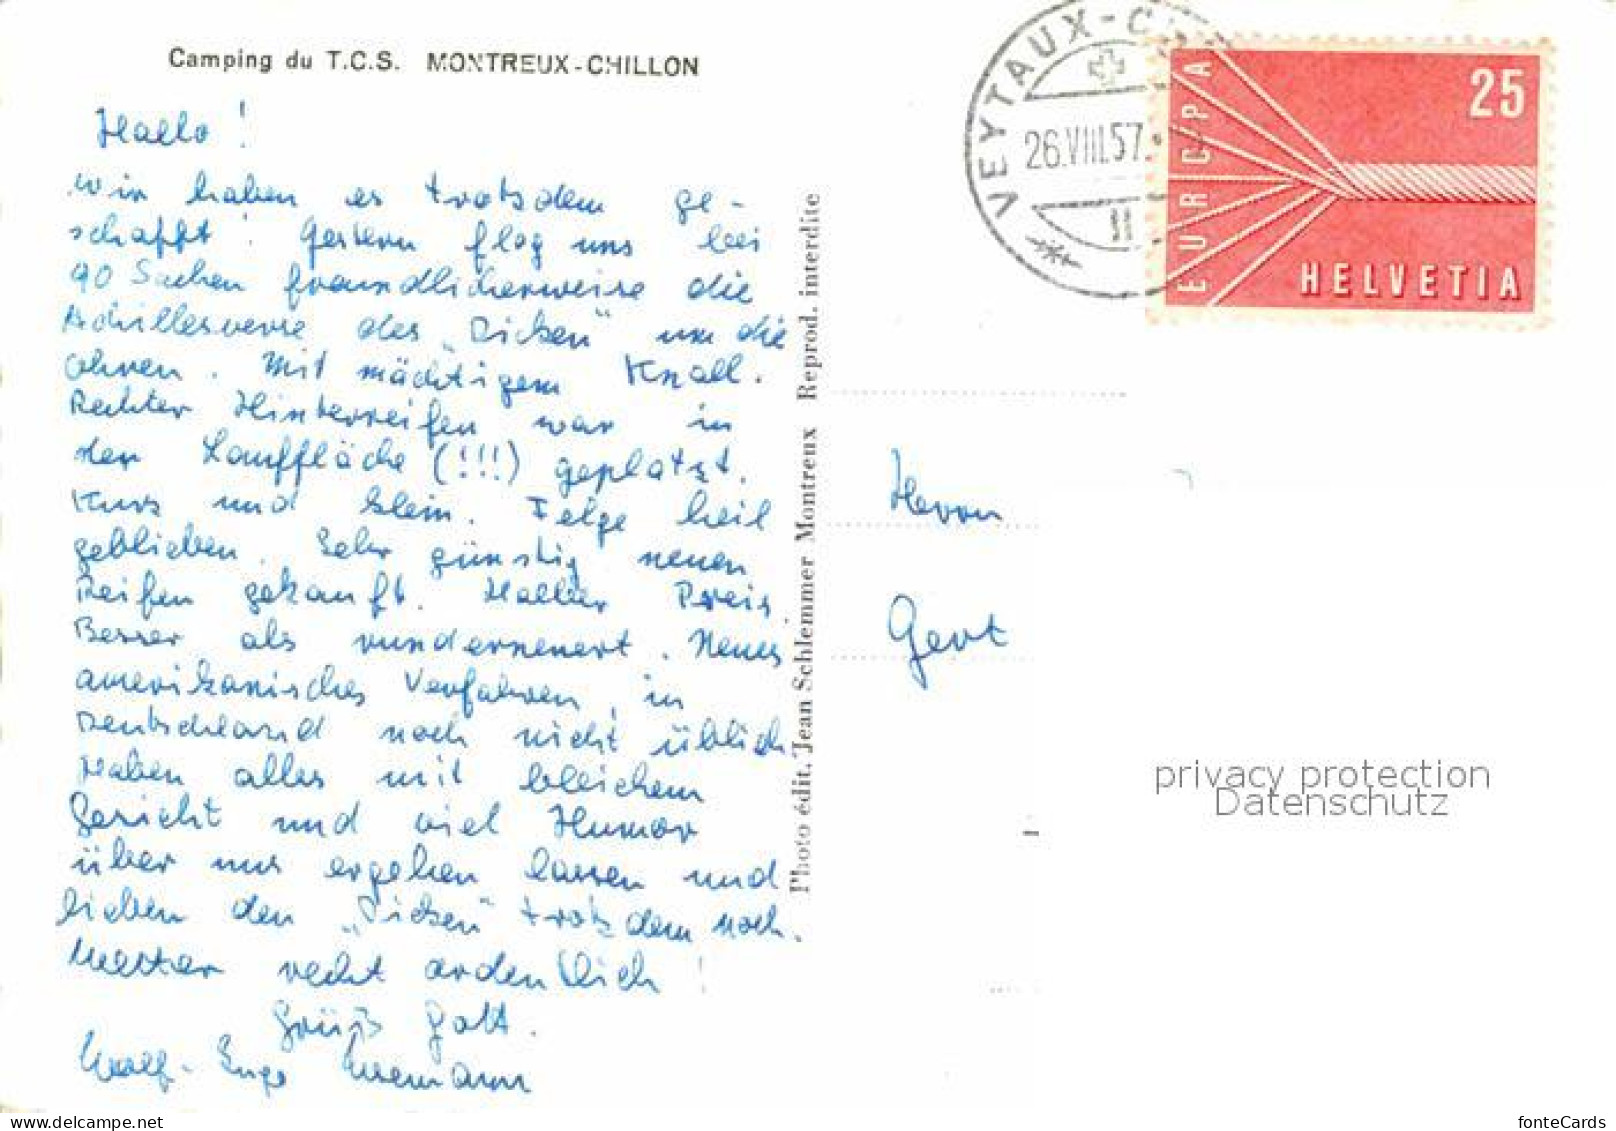 Camping du T.C.S. MONTREUX-CHILLON
Hallo!
Wir haben es trotzdem ge-
schafft! Gestern flog uns bei
90 Sachen freundlicherweise die
Achillesverse des „Dicken" um die
Ohren. Mit mächtigem Knall.
Rechter Hinterreifen war in
der Lauffläche (!!!) geplatzt.
Kurz und klein. Felge heil
geblieben. Sehr günstig neuen
Reifen gekauft. Halber Preis
Besser als runderneuert. Neues
amerikanisches Verfahren, in
Deutschland noch nicht üblich
Haben alles mit bleichem
Gesicht und viel Humor
über uns ergehen lassen und
lieben den „Dicken" trotzdem noch.
Wetter recht ordentlich!
Grüß Gott.
Wolf-Ingo
Photo édit. Jean Schlemmer Montreux Reprod. interdite
VEYTAUX-C
26.VIII.57
11
EUROPA
25
HELVETIA
Herrn
Gert
privacy protection
Datenschutz
delcampe.net
fonteCards